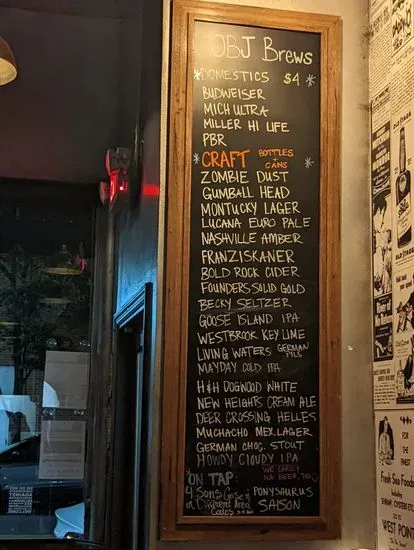 OBJ Brews
DOMESTICS $4
BUDWEISER
MICH ULTRA
MILLER HI LIFE
PBR
CRAFT BOTTLES + CANS
ZOMBIE DUST
GUMBALL HEAD
MONTUCKY LAGER
LUCANA EURO PALE
NASHVILLE AMBER
FRANZISKANER
BOLD ROCK CIDER
FOUNDERS SOLID GOLD
BECKY SELTZER
GOOSE ISLAND IPA
WESTBROOK KEY LIME
LIVING WATERS GERMAN PILS
MAYDAY COLD IPA
H&H DOGWOOD WHITE
NEW HEIGHTS CREAM ALE
DEER CROSSING HELLES
MUCHACHO MEX. LAGER
GERMAN CHOC. STOUT
HOWDY CLOUDY IPA
ON TAP
WE CARRY NA BEER, TOO!
4 Sons Gose
in Different Area
Codes
PONYSAURUS
SAISON
FOR
THE
FINEST
Fresh Sea Foods
WEST POINT